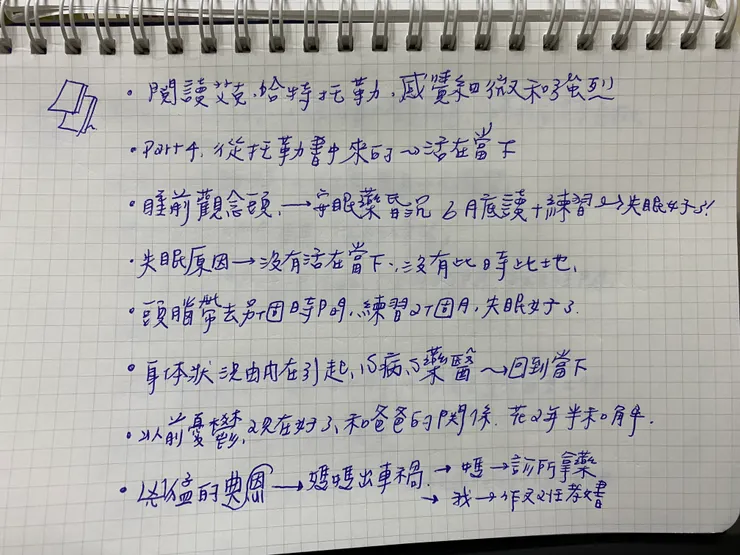 • 閱讀艾克.哈特托勒,感覺細微和強烈
• Part 4, 從托勒書中來的~活在當下
• 睡前觀念頭,→安眠藥昏沉 6月底讀+練習→失眠好了!
• 失眠原因→沒有活在當下、沒有此時此地,
• 頭腦帶去另個時間,練習2個月,失眠好了.
• 身体狀況由內在引起,心病,心藥醫→回到當下
• 以前憂鬱,現在好了,和爸爸的関係.花2年半和解.
• 凶猛的典恩→媽媽出車禍.→媽→診所拿藥
→我→作